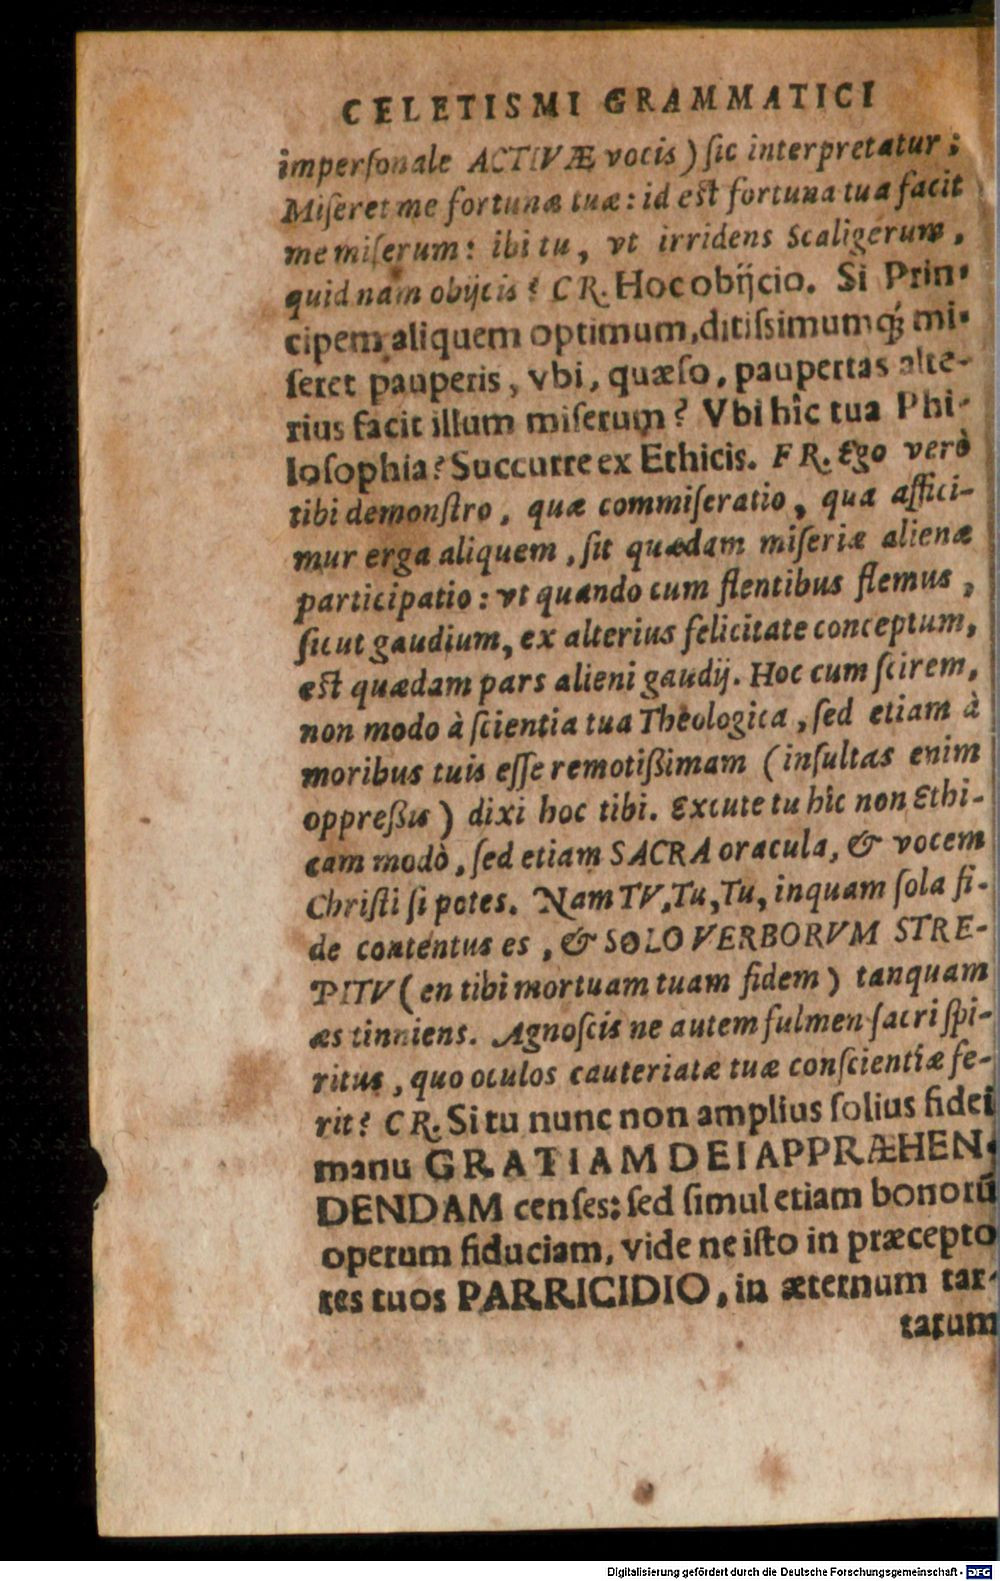 CELETISMI GRAMMATICI
imperſonale ACTIVÆ vocis) ſic interpretatur;
Miſeret me fortunæ tuæ: id eſt fortuna tua facit
me miſerum: ibi tu, vt irridens Scaligerum,
quid nam obijcis? CR. Hoc obijcio. Si Prin-
cipem aliquem optimum, ditiſsimumq́; mi-
ſeret pauperis, vbi, quæſo, paupertas alte-
rius facit illum miſerum? Vbi hîc tua Phi-
loſophia? Succurre ex Ethicis. FR. Ego verò
tibi demonſtro, quæ commiſeratio, qua affici-
mur erga aliquem, ſit quædam miſeriæ alienæ
participatio: vt quando cum flentibus flemus,
ſicut gaudium, ex alterius felicitate conceptum,
eſt quædam pars alieni gaudij. Hoc cum ſcirem,
non modo à ſcientia tua Theologica, ſed etiam à
moribus tuis eſſe remotißimam (inſultas enim
oppreßis) dixi hoc tibi. Excute tu hîc non Ethi-
cam modò, ſed etiam SACRA oracula, & vocem
Chriſti ſi potes. Nam TV, Tu, Tu, inquam ſola fi-
de contentus es, & SOLO VERBORVM STRE-
PITV (en tibi mortuam tuam fidem) tanquam
æs tinniens. Agnoſcis ne autem fulmen ſacri ſpi-
ritus, quo oculos cauteriatæ tuæ conſcientiæ fe-
rit? CR. Si tu nunc non amplius ſolius fidei
manu GRATIAM DEI APPRÆHEN-
DENDAM cenſes: ſed ſimul etiam bonorū
operum fiduciam, vide ne iſto in præcepto
res tuos PARRICIDIO, in æternum tar-
tarum
Digitalisierung gefördert durch die Deutsche Forschungsgemeinschaft - DFG